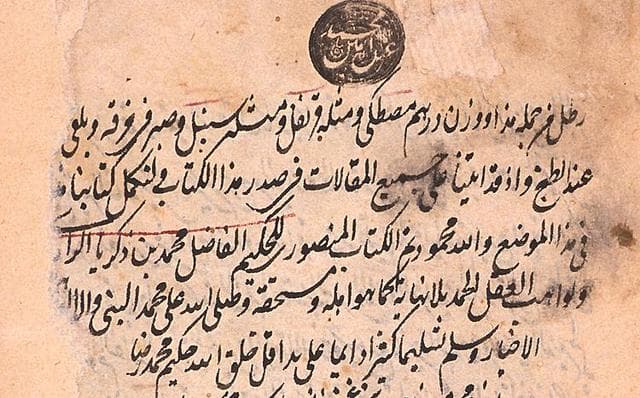 رطل من جمله هذا ووزن درهم مصطكى ومثله قرنفل ومثله سنبل وصير فى خرقة ويلقى
عند الطبخ واذ قد اتينا على جميع المقالات فى صدر هذا الكتاب فلنكمل كتابنا
فى هذا الموضع والله محمود تم الكتاب المنصورى للحكيم الفاضل محمد بن زكريا الرا
ولواهب العقل الحمد بلا نهاية كما هو اهله ومستحقه وصلى الله على محمد النبى واله
الاخيار وسلم تسليما كثيرا دايما على يد اقل خلق الله حكيم محمد رضا